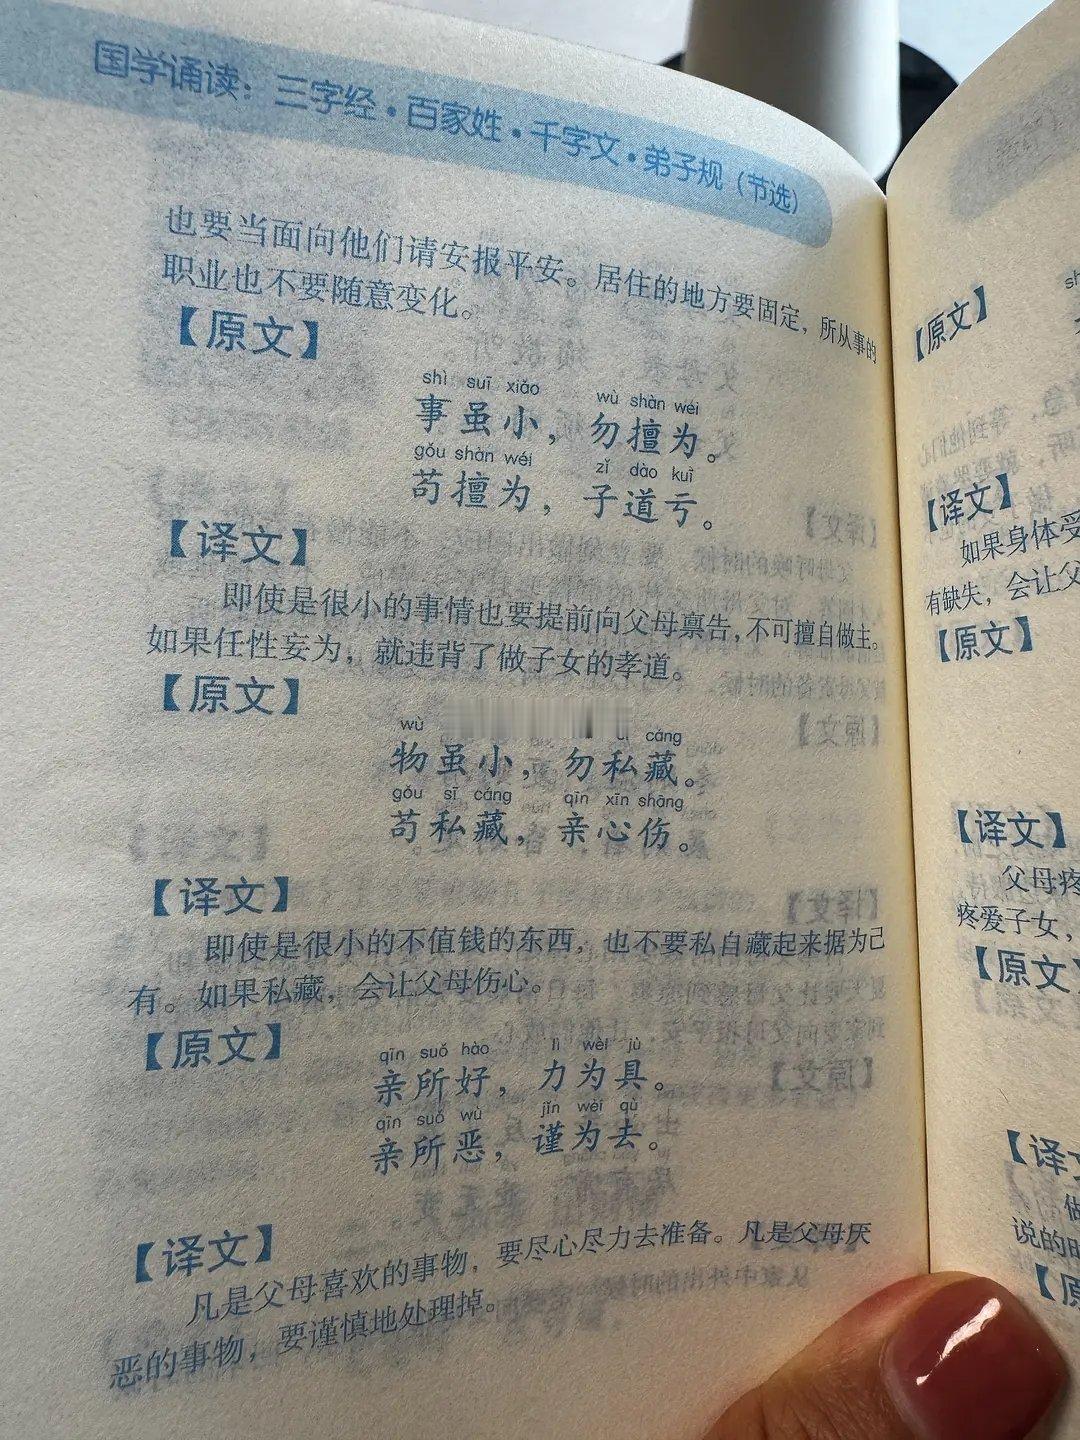 国学诵读：三字经·百家姓·千字文·弟子规（节选）
也要当面向他们请安报平安。居住的地方要固定，所从事的
职业也不要随意变化。
【原文】
shì suī xiǎo wù shàn wéi
事虽小，勿擅为。
gǒu shàn wéi zǐ dào kuī
苟擅为，子道亏。
【译文】
即使是很小的事情也要提前向父母禀告，不可擅自做主。
如果任性妄为，就违背了做子女的孝道。
【原文】
wù cáng
物虽小，勿私藏。
gǒu sī cáng qīn xīn shāng
苟私藏，亲心伤。
【译文】
即使是很小的不值钱的东西，也不要私自藏起来据为己
有。如果私藏，会让父母伤心。
【原文】
qīn suǒ hào lì wèi jù
亲所好，力为具。
qīn suǒ wù jǐn wèi qù
亲所恶，谨为去。
【译文】
凡是父母喜欢的事物，要尽心尽力去准备。凡是父母厌
恶的事物，要谨慎地处理掉。
【原文】
【译文】
如果身体受
有缺失，会让父
【原文】
【译文】
父母疼
疼爱子女，
【原文】
【译文
说的时
【原